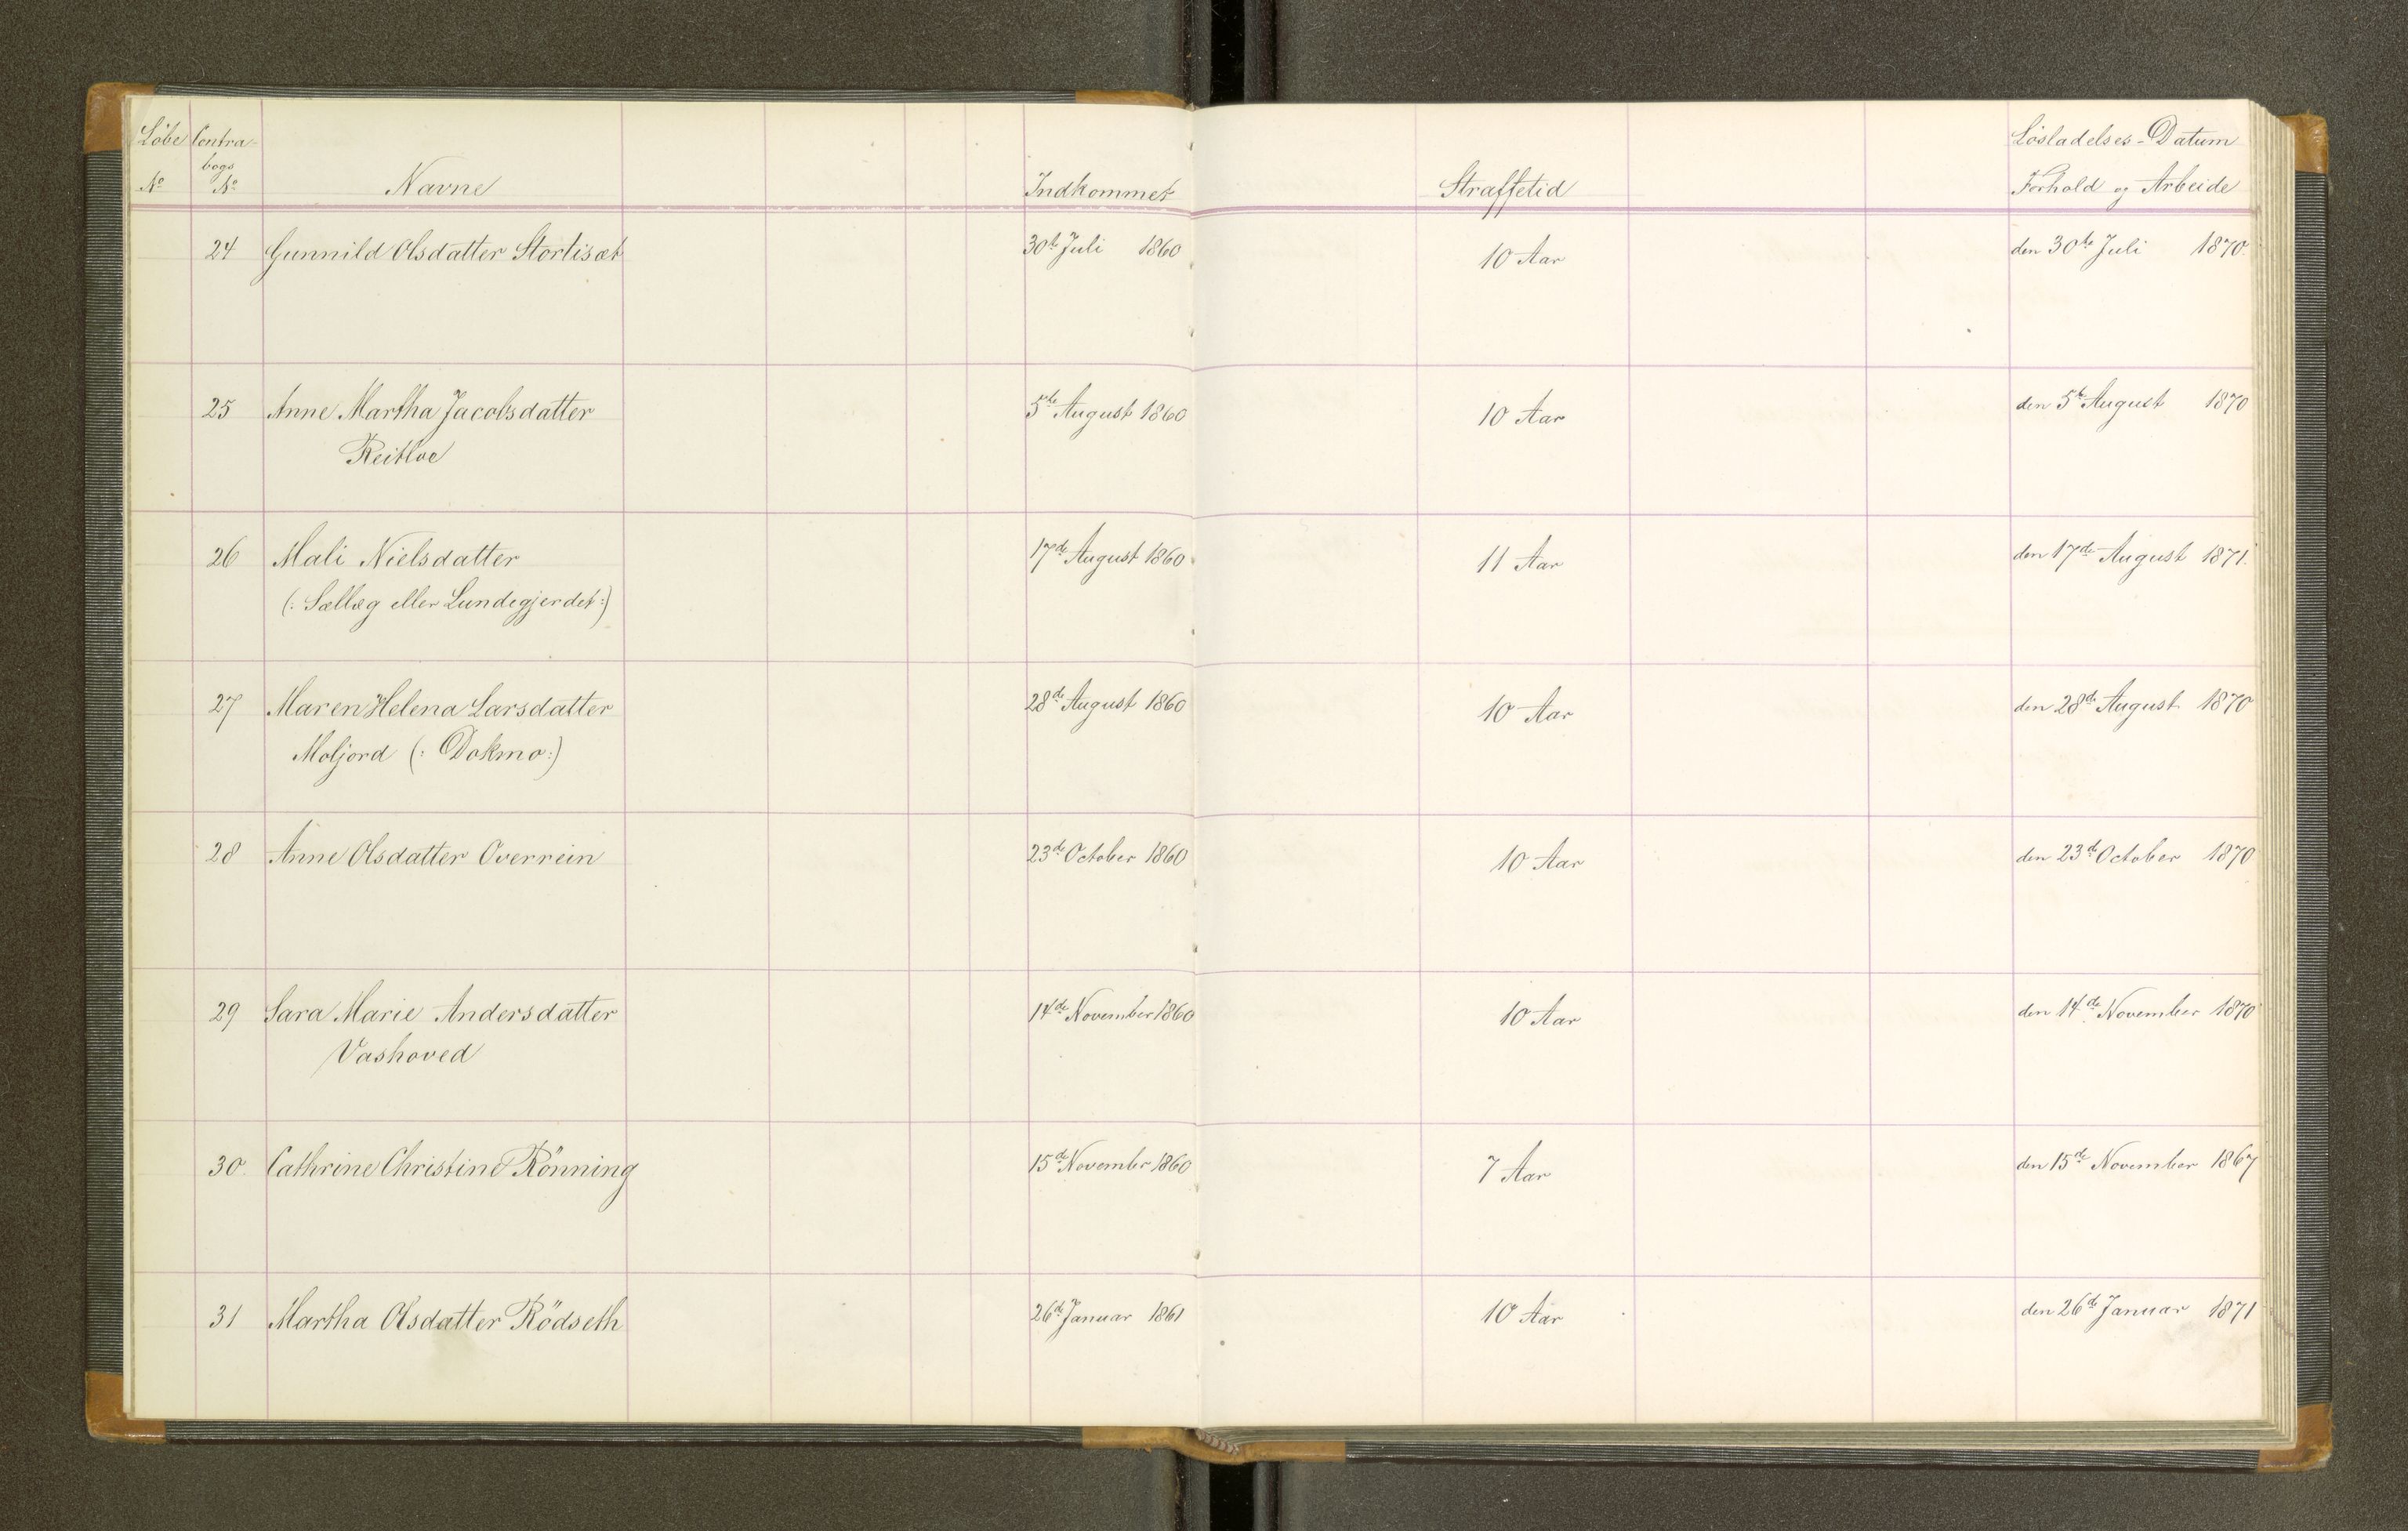 Löbe Contra-
bogs
No No Navne Indkommet Straffetid Løsladelses-Datum
Forhold og Arbeide
24 Gunnild Olsdatter Stortisæt 30te Juli 1860 10 Aar den 30te Juli 1870.
25 Anne Martha Jacobsdatter 5te August 1860 10 Aar den 5te August 1870
Reitloe
26 Mali Nielsdatter 17de August 1860 11 Aar den 17de August 1871.
(: Sællæg eller Lundegjerdet :)
27 Maren Helena Larsdatter 28de August 1860 10 Aar den 28de August 1870
Moljord (: Dokmo :)
28 Anne Olsdatter Overrein 23de October 1860 10 Aar den 23de October 1870
29 Sara Marie Andersdatter 14de November 1860 10 Aar den 14de November 1870
Vashoved
30. Cathrine Christine Rönning 15de November 1860 7 Aar den 15de November 1867
31 Martha Olsdatter Rödseth 26de Januar 1861 10 Aar den 26de Januar 1871